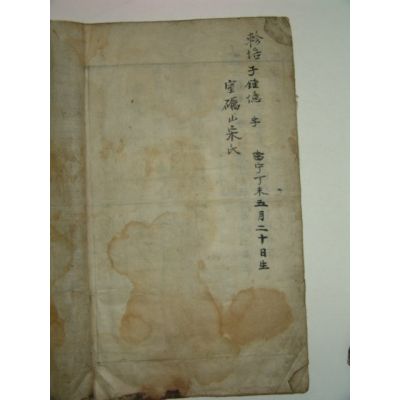 培子鍾 字 當宁丁未五月二十日生
室礪山宋氏